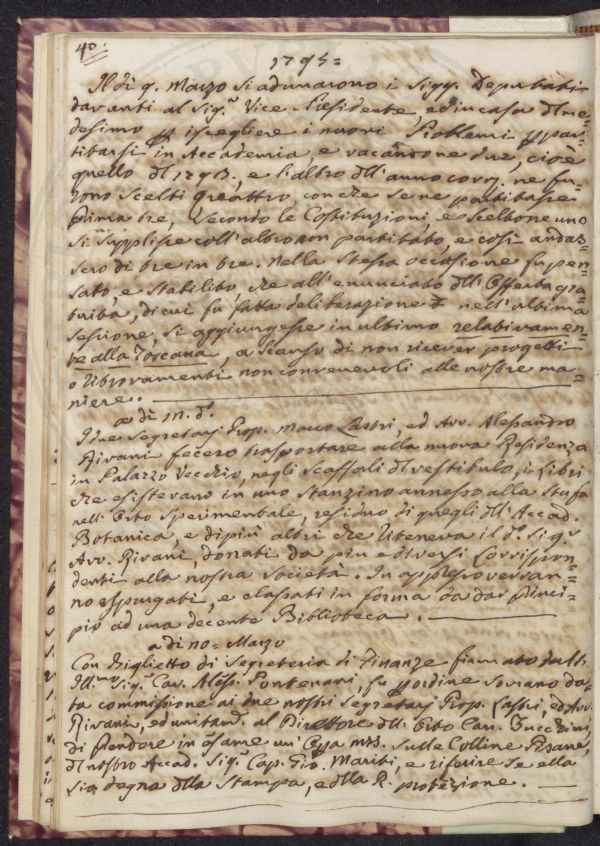 40.
1795=
Il dì 9. Marzo si adunarono i Sigg. Deputati
davanti al Sig.r Vice Presidente, ed in casa d'l me=
desimo p iscegliere i nuovi Problemi p par=
tibarsi in Accademia, e vacandone due, cioè
quello d'l 1793, e l'altro dll' anno corr. ne fu=
rono scelti quattro, con che se ne partibasse
prima tre, secondo le Costituzioni, e sceltone uno
si supplisse coll' altro non partitato, e così andas=
sero di tre in tre. Nella stessa occasione fu pen=
sato, e stabilito, che all' enunciato dll' Offerta gra=
tuita, di cui fu fatta deliberazione nell' ultima
sessione, si aggiungesse in ultimo relativamen=
te alla Toscana, a scanso di non ricever progetti
o ritrovamenti non convenevoli alle nostre ma=
niere.
a dì d.o
I due Segretarj Prop. Marco Lastri, ed Avv. Alessandro
Rivani fecero trasportare alla nuova Residenza
in Palazzo Vecchio, negli Scaffali d'l vestibulo, i Libri
che esistevano in uno Stanzino annesso alla Stufa
nell' Orto Sperimentale, residuo di quegli dll' Accad.
Botanica, e di più altri che riteneva il d.o Sig.r
Avv. Rivani, donati da più e diversi Corrispon=
denti alla nostra Società. In appresso verran=
no espurgati, e classati in forma da dar princi=
pio ad una decente Biblioteca.
a di Marzo
Con Biglietto di Segreteria di Finanze firmato dall'
Ill.mo Sig.r Cav. Aless. Pontenani, fu p ordine sovrano da=
ta commissione ai due nostri Segretarj Prop. Lastri, ed Avv.
Rivani, ed unitam. al Direttore dll' Orto Cav. Zucchini,
di prendere in esame un' Op.a ms. sulle Colline Pisane,
d'l nostro Accad. Sig.r Cap. Gio. Mariti, e riferire se ella
sia degna dlla Stampa, e dlla R. protezione.